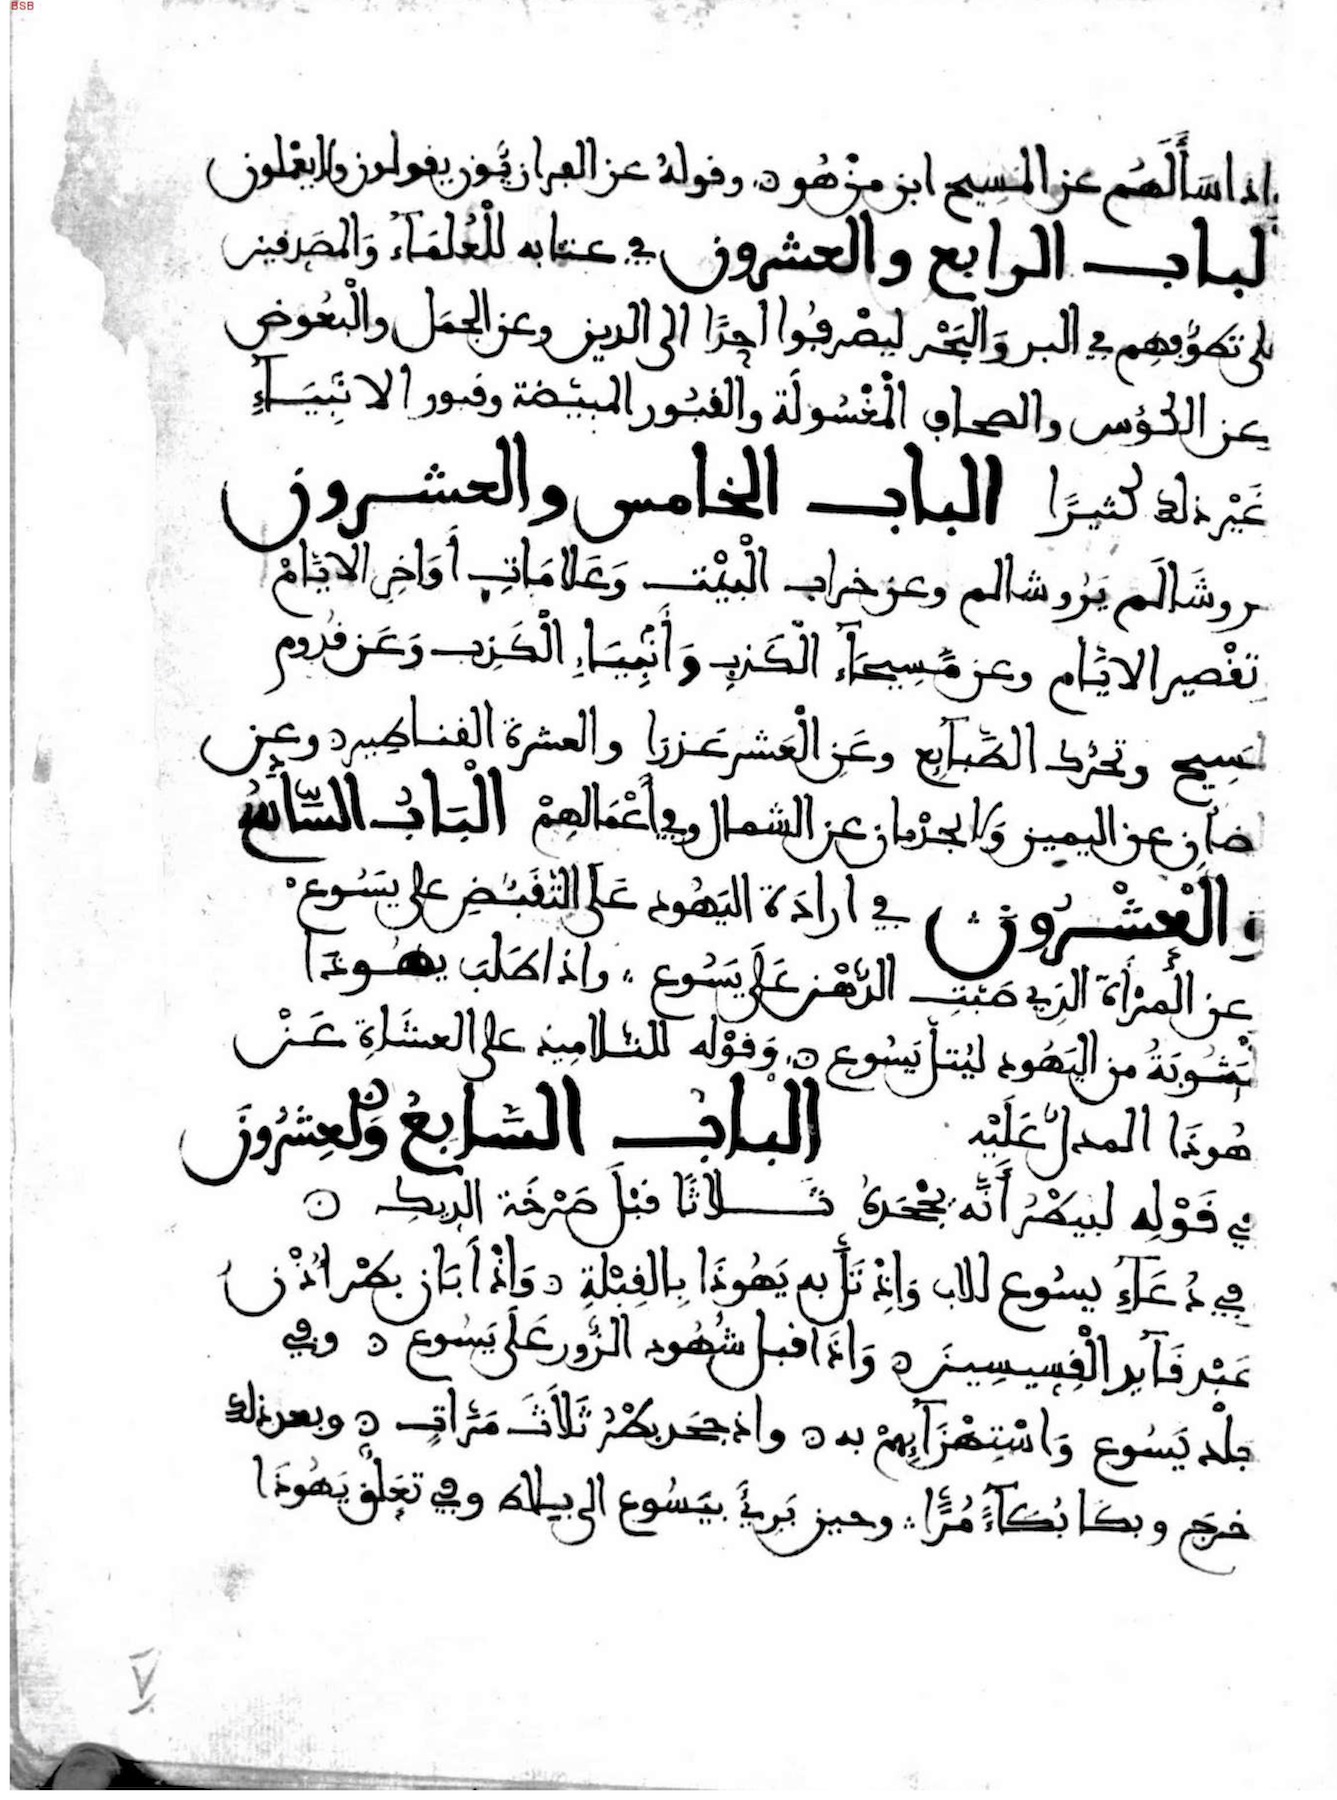 اذا سَأَلَهُم عن المسِيح ابن مَنْ هُو ۞ وقولهُ عن الفرازيّون يقولون ولا يعْملون
لباب الرابع والعشرون في عتابه للْعُلمَآء وَالمصَدقين
على تطوُّفهم في البر وَالبَحْر ليصْرفُوا احدًا الى الدين وعن الجمَل والْبعُوض
عن الكؤس والصحاف الْمغْسُولَة والقبُور المبيّضة وقبور الانبِيَــآءِ
غَيْر ذلك كثيرًا الباب الخامس والعشرون
يروشَالَم يَرُوشالم وعن خراب الْبيْت وَعَلامَاتِ أوَاخِرِ الايَّامْ
تقْصير الايَّام وعن مَّسِيحَآء الكَذِبِ وَأَنْبِيَاءِ الْكَذِب وَعَن قدُوم
لمَسِيح وتحرُّك الطَّبآيِع وعَنِ الْعَشر عَزرَا والعشرة القناطِير ۞ وعن
ضأنِ عن اليمين وَالجرْمان عن الشمال وفي أعْمَالهِمْ الْبَابُ السَّاْسُ
والْعشْــرُون في ارادَة اليَهُود عَلَى التّقَبُّضِ على يسَوع
عن الْمرْأة الذِي صَبّتِ الدُّهْن عَلَى يَسُوع ؞ واذ اطلَبَ يهُــوذَا
لرُّشُوبَةُ من اليَهُود ليُقتل يَسُوع ۞ وَقوْله للتــلامِيذ على العشَاءِ عَــنْ
هُوذَا المدلّ عَلَيْه البابُ السَّابعُ وَلعِشرُونَ
في قَوْلِه لبيطْرُ أَنَّه يَجْحَدهُ ثَـــلاثًا قبْلَ صَرْخَة الديك ۞
في دُعَآءِ يسُوع للاب وَاِذْ تَلّ به يَهُوذَا بِالقِبْلةِ ۞ وَاذْ أبَان بطْر اُذْن
عَبْد قَآيد الْقسِيسِينَ ۞ وَاذَا اقبل شُهُود الزُّور عَلَى يَسُوع ۞ وفي
جلْد يَسُوع وَاسْتِهْزَآيِهمْ به ۞ واذ جحَد بطْرُ ثَلَاثَ مَرَّاتٍ ۞ وبعد ذلك
خرجَ وبكَا بُكَآءً مُرًّا ؞ وحين بَرِئَ بيَسُوع الى بيلاط وفي تعَلقِ يَهُوذَا
٧
BSB